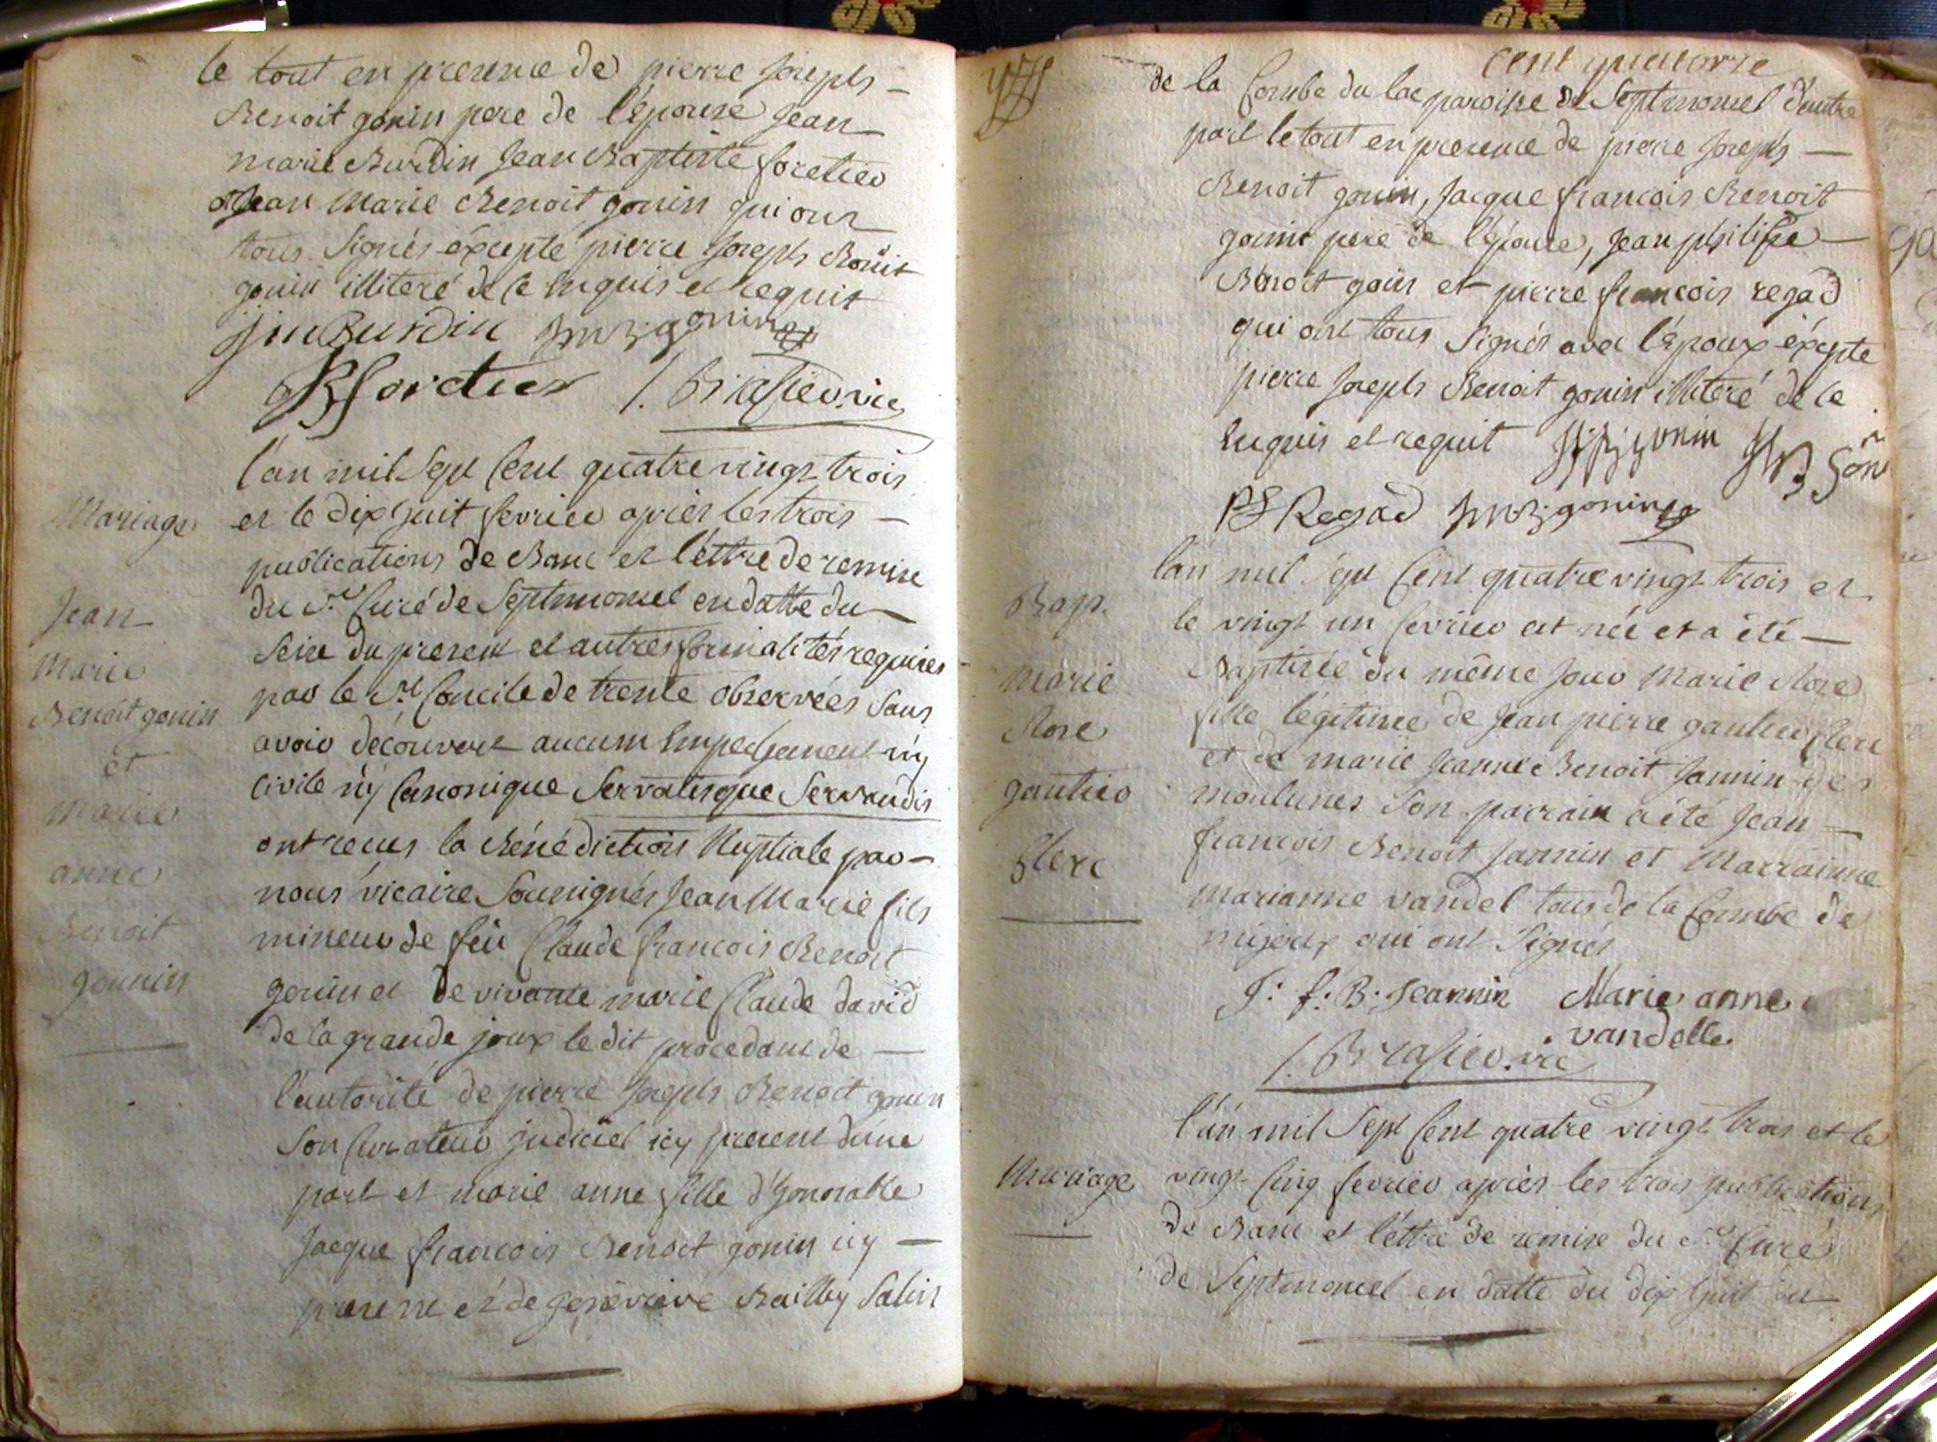 le tout en presence de pierre Joseph
Benoit gonin pere de l'épouse Jean
marie Burdin Jean Baptiste foretier
et Jean Marie Benoit gonin qui ont
tous signés éxcepte pierre Joseph Benoit
gonin illiteré de ce enquis et requit
jm Burdin jmbgonin
JB foretier /. Brasier vic
Mariage
Jean
Marie
Benoit gonin
et
marie
anne
Benoit
gonnin
l'an mil sept Cent quatre vingt trois
et le dix huit fevrier après les trois
publications de Banc et léttre de remise
du Sr Curé de Septmoncel en datte du
seize du present et autres formalités requises
par le St Concile de trente observées sans
avoir découvert aucum Empechement n'y
Civile n'y Canonique Servatisque Servandis
ont recus la Bénédiction Nuptiale par
nous vicaire Sousignés Jean Marie fils
mineur de feu Claude francois Benoit
gonin et de vivante marie Claude david
de la grande joux le dit procedant de
l'autorité de pierre Joseph Benoit gonin
son Curateur judiciel icy present d'une
part et marie anne fille d'honorable
Jacque francois Benoit gonin icy
present et de geneviéve Bailly Salin
cent quatorze
de la Combe du lac paroisse de Septmoncel d'autre
part le tout en presence de pierre Joseph
Benoit gonin, Jacque francois Benoit
gonin pere de l'épouse, Jean philipe
Benoit gonin et pierre francois regad
qui ont tous signés avec l'Epoux éxcepte
pierre Joseph Benoit gonin illiteré de ce
Enquis et requit
PF Regad jmbgonin
Bap.
marie
Rose
gautier
Clerc
l'an mil sept Cent quatre vingt trois et
le vingt un fevrier est née et a été
Baptisée du même jour Marie Rose
fille légitime de Jean pierre gautier Clerc
et de marie Jeanne Benoit Jannin des
moulunes son parrain a été Jean
francois Benoit Jannin et Marrainne
marianne vandel tous de la Combe de
mijoux qui ont signés
J: f: B: Jeannin Marie anne
vandelle
/. Brasier vic
Mariage
l'an mil Sept Cent quatre vingt trois et le
vingt Cinq fevrier après les trois publications
de Banc et léttre de remise du Sr Curé
de Septmoncel en datte du dix huit du